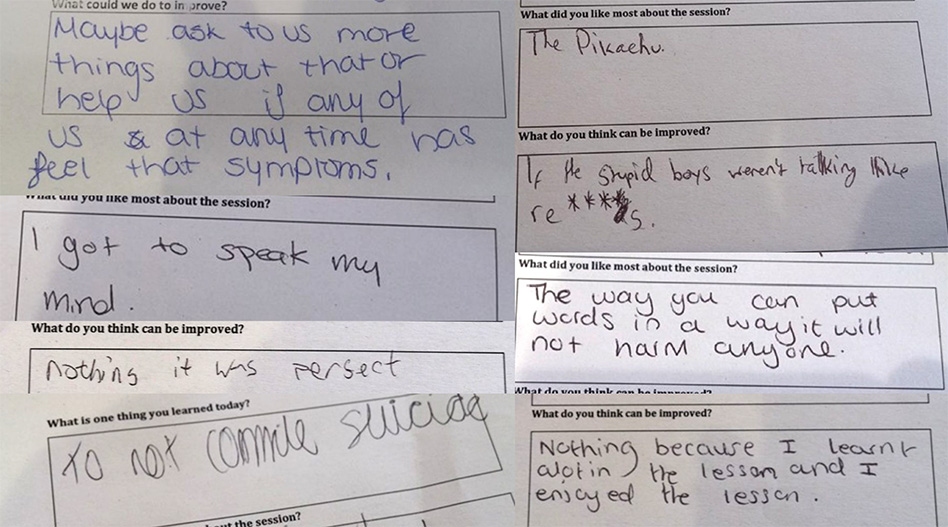 What could we do to improve?
Maybe ask to us more
things about that or
help us if any of
us & at any time has
feel that symptoms.
What did you like most about the session?
I got to speak my
mind.
What do you think can be improved?
nothing it was persect
What is one thing you learned today?
to not commite suicide
out the session?
What did you like most about the session?
The Pikachu.
What do you think can be improved?
If the stupid boys weren't talking like
re****s.
What did you like most about the session?
The way you can put
words in a way it will
not harm anyone.
What do you think can be improved?
What do you think can be improved?
Nothing because I learnt
alot in the lesson and I
enjoyed the lesson.